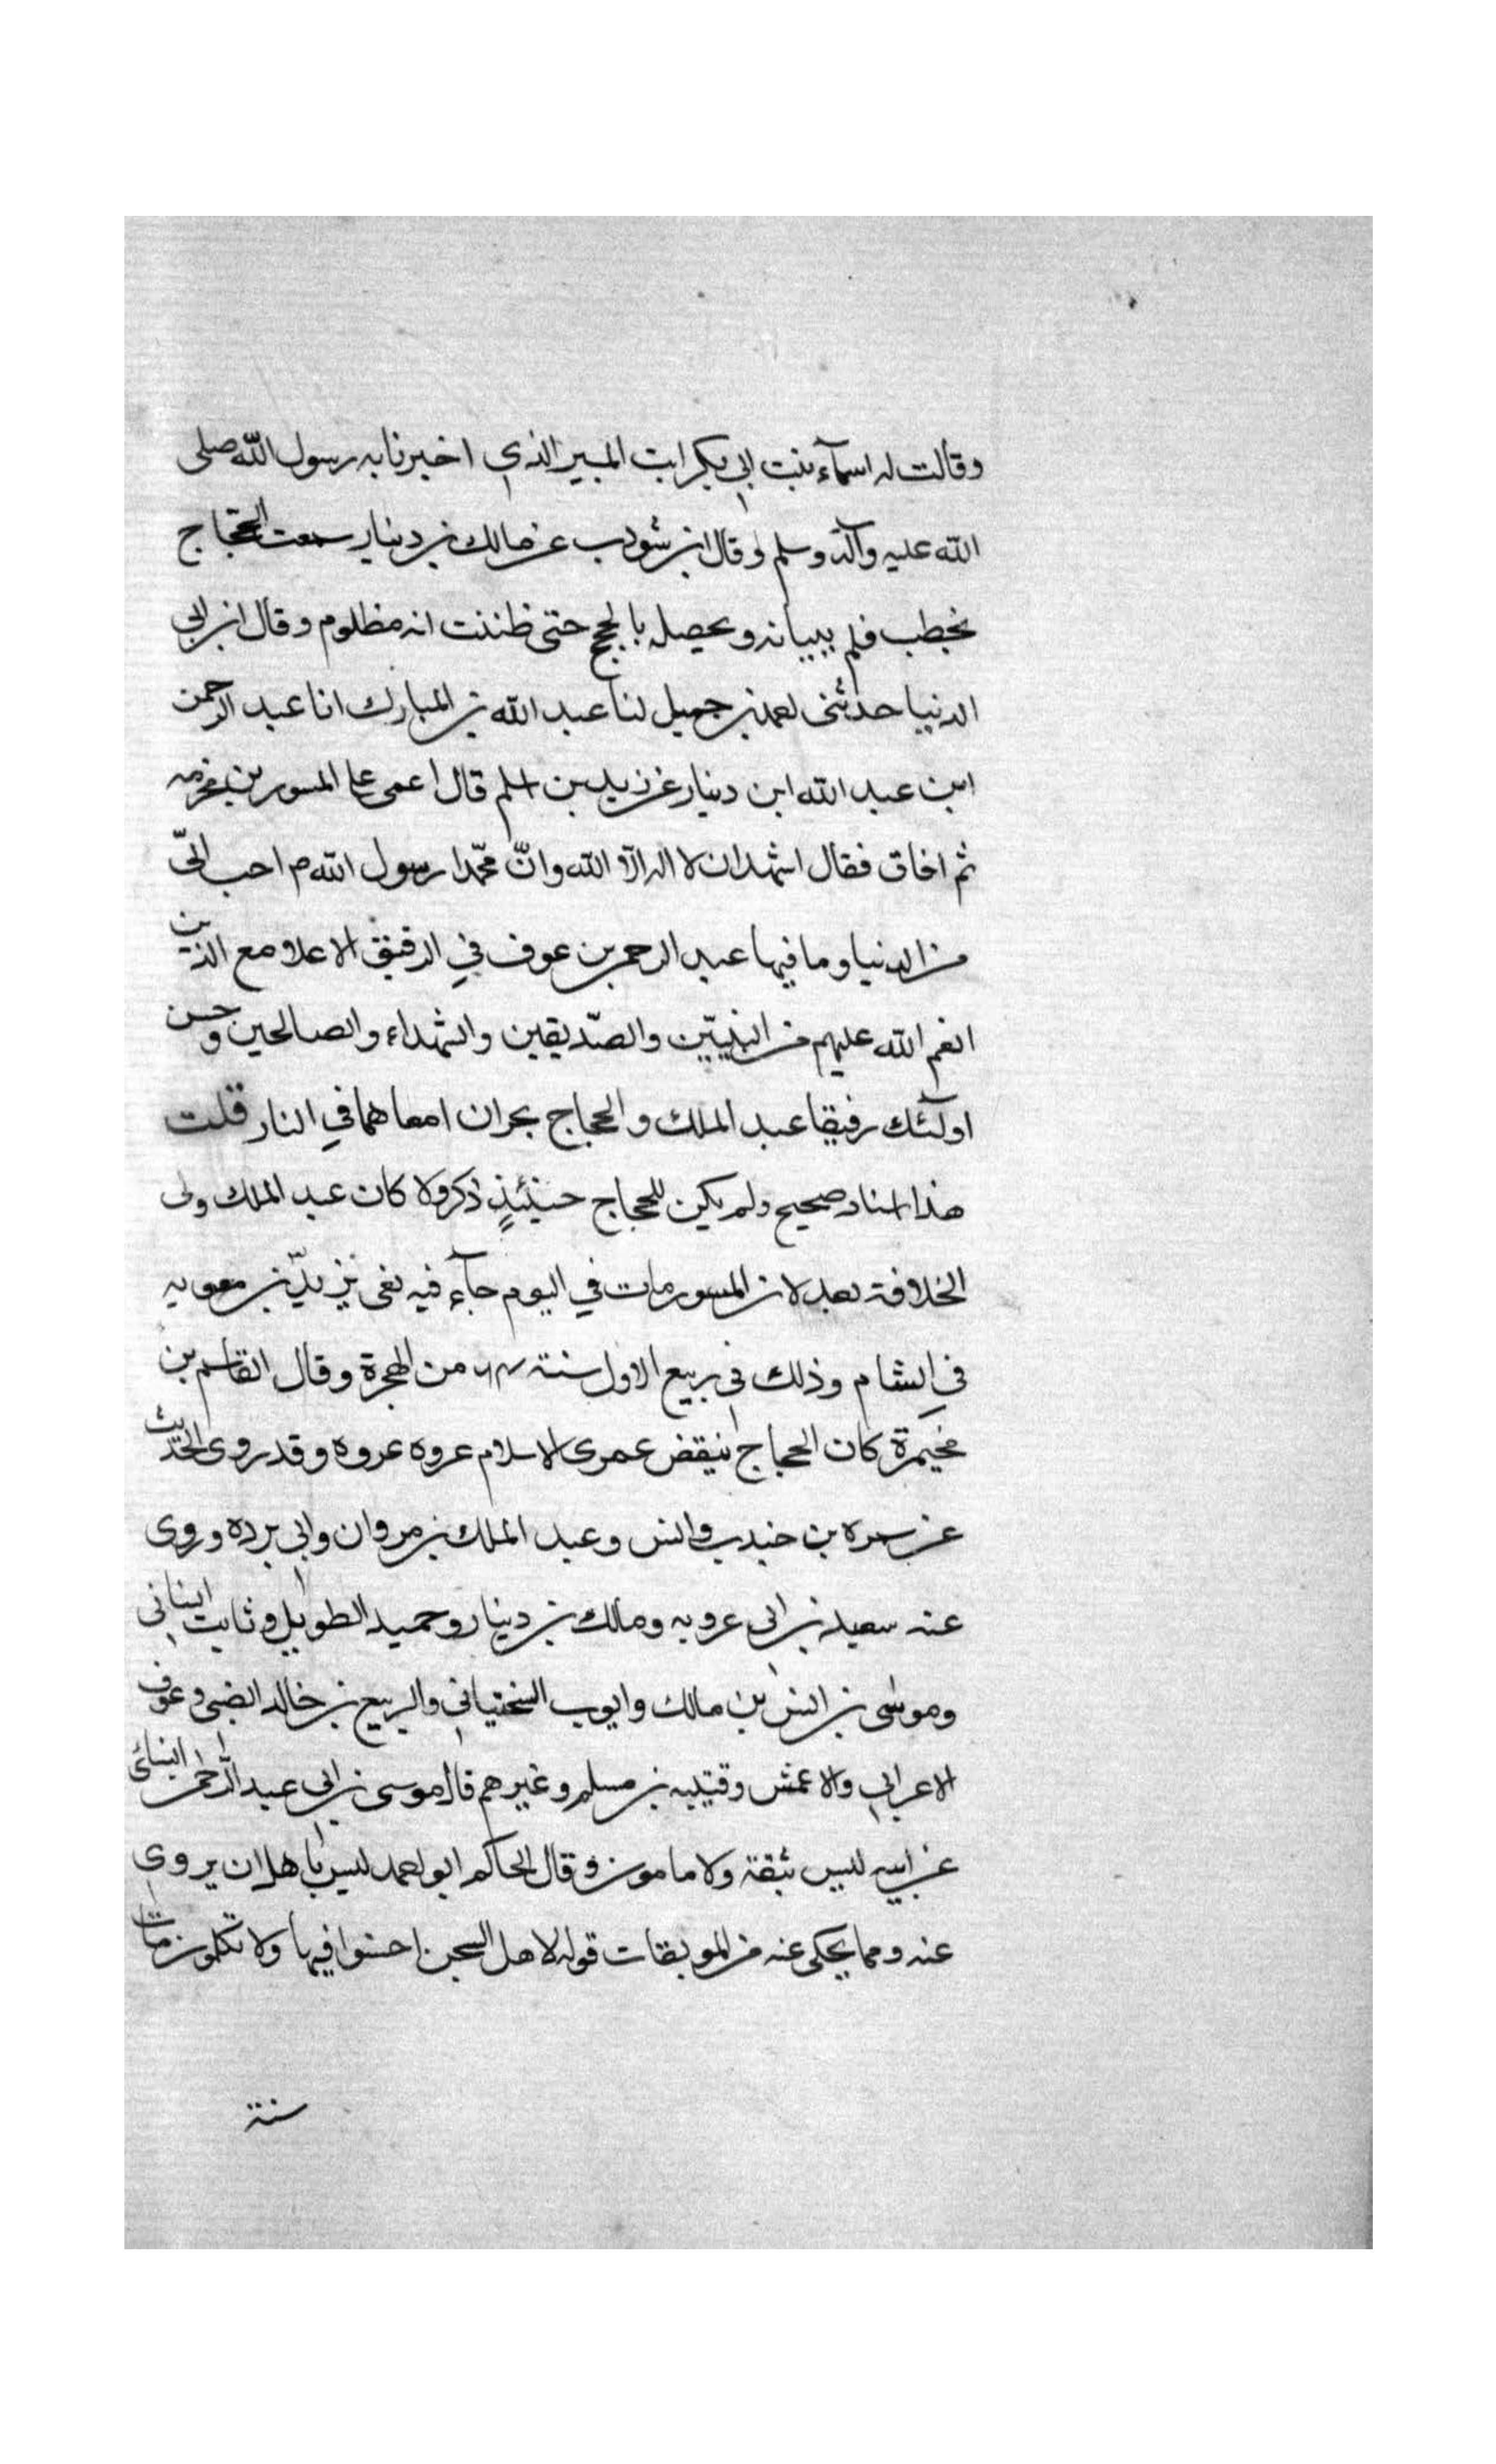 وقالت له اسمآء بنت ابي بكر انت المبير الذي اخبرنا به رسول الله صلى
الله عليه وآله وسلم وقال ابن شوذب عن مالك بن دينار سمعت الحجاج
يخطب فلم ببيانه و بالحجج حتى ظننت انه مظلوم وقال ابن ابي
الدنيا حدثنى احمد بن جميل لنا عبد الله بن المبارك انا عبد الرحمن
ابن عبد الله ابن دينار عن زيد بن اسلم قال اغمى على المسور بن مخرمه
ثم افاق فقال اشهد ان لا اله الّا الله وانّ محمّدا رسول الله م احب الىّ
من الدنيا وما فيها عبد الرحمن بن عوف في الرفيق الاعلا مع الذين
انعم الله عليهم من النبيّين والصّديقين والشهداء والصالحين وحسن
اولٓئك رفيقا عبد الملك والحجاج يجران امعاهما في النار قلت
هذا اسناد صحيح ولم يكن للحجاج حينئذٍ ذكر ولا كان عبد الملك ولى
الخلافة بعد لان المسور مات في اليوم جآء فيه نعى يزيد بن معويه
في الشام وذلك في ربيع الاول سنة من الهجرة وقال القاسم بن
مخيمرة كان الحجاج ينقض عرى الاسلام عروه عروه وقد روى الحديث
عن سمره بن جندب وانس وعبد الملك بن مروان وابي برده وروى
عنه سعيد بن ابي عروبه ومالك بن دينار وحميد الطويل وثابت البناني
وموسى بن انس بن مالك وايوب السختياني والربيع بن خالد الضبى وعوف
الاعرابي والاعمش وقتيبه بن مسلم وغيرهم قال موسى بن ابي عبد الرحمن النسائى
عن ابيه ليس بثقة ولا مامون وقال الحاكم ابو احمد ليس باهل ان يروى
عنه ومما يحكى عنه من الموبقات قوله لاهل السجن اخسئوا فيها ولا تكلمون مات
سنة